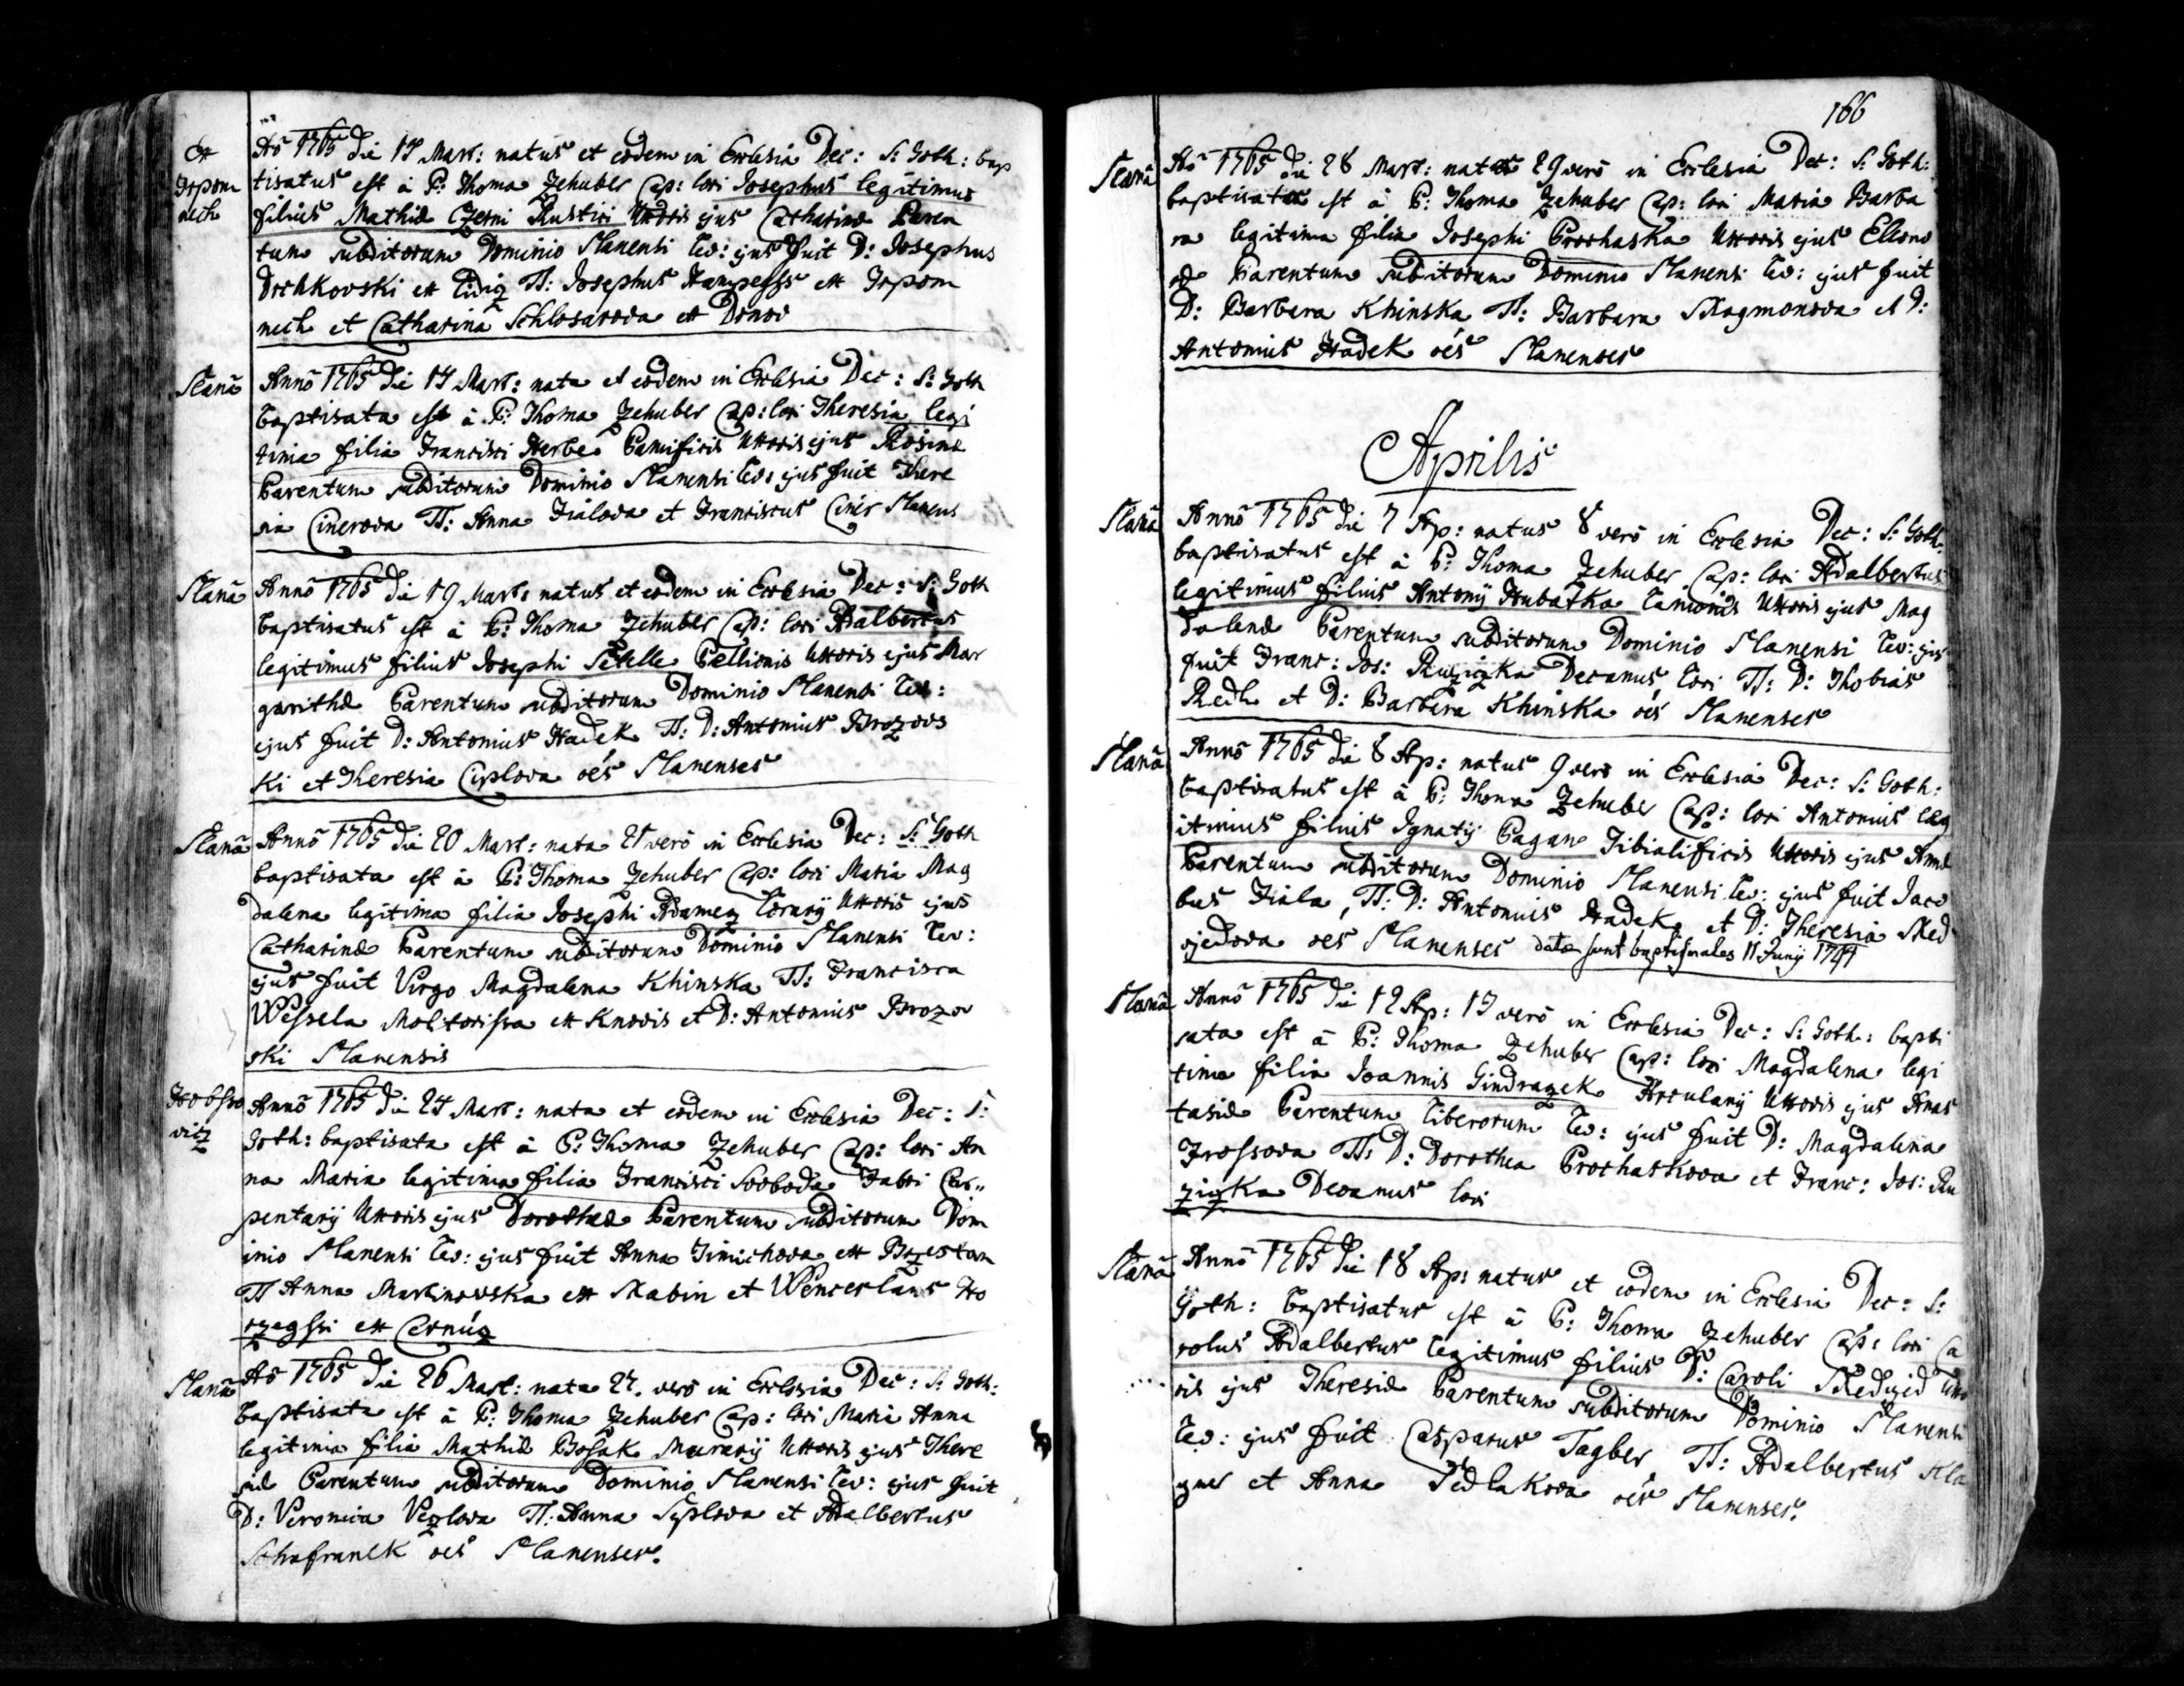 Ex
Trpom
nech
Aõ 1765 die 17 Mart: natus et eodem in Ecclesia Dec: S: Goth: bap
tisatus est à P: Thoma Zehuber Cap: loci Josephus legitimus
filius Mathiæ Czerni Rustici Uxoris ejus Catharinæ Paren
tum subditorum Dominio Slanensi Lev: ejus fuit D: Josephus
Drchkovski ex Lidiz TT: Josephus Hampejss ex Trpom
nech et Catharina Schlosarova ex Drnov
Slanã
Annõ 1765 die 17 Mart: nata et eodem in Ecclesia Dec: S: Goth
baptisata est à P: Thoma Zehuber Cap: loci Theresia legi
tima filia Francisci Herbe Panificis Uxoris ejus Rosinæ
Parentum subditorum Dominio Slanensi Lev: ejus fuit There
sia Cinerova TT: Anna Fialova et Franciscus Cinér Slanens
Slanã
Annõ 1765 die 19 Mart: natus et eodem in Ecclesia Dec: S: Goth
baptisatus est à P: Thoma Zehuber Cap: loci Adalbertus
legitimus filius Josephi Setelle Pellionis Uxoris ejus Mar
garithæ Parentum subditorum Dominio Slanensi Lev:
ejus fuit D: Antonius Hadek TT: D: Antonius Brozovs
ki et Theresia Cyplova oes Slanenses
Slanã
Annõ 1765 die 20 Mart: nata 21 verò in Ecclesia Dec: S: Goth
baptisata est à P: Thoma Zehuber Cap: loci Maria Mag
dalena legitima filia Josephi Adamez Lorarij Uxoris ejus
Catharinæ Parentum subditorum Dominio Slanensi Lev:
ejus fuit Virgo Magdalena Khinska TT: Francisca
Wessela Molitorissa ex Knovis et D: Antonius Brozov
ski Slanensis
Hobsso
vicz
Annõ 1765 die 24 Mart: nata et eodem in Ecclesia Dec: S:
Goth: baptisata est à P: Thoma Zehuber Cap: loci An
na Maria legitima filia Francisci Svoboda Fabri Car„
pentarij Uxoris ejus Dorotheæ Parentum subditorum Dom
inio Slanensi Lev: ejus fuit Anna Simichova ex Brzestan
TT Anna Martinovska ex Mabin et Wenceslaus Ho
rzegssi ex Cernúz
Slanã
Aõ 1765 die 26 Mart: nata 27. verò in Ecclesia Dec: S: Goth:
baptisata est à P: Thoma Zehuber Cap: loci Maria Anna
legitima filia Mathiæ Bosak Murarij Uxoris ejus There
siæ Parentum subditorum Dominio Slanensi Lev: ejus fuit
D: Veronica Vezlova TT: Anna Seplova et Adalbertus
Schafranek oes Slanenses.
166
Slanã
Aõ 1765 die 28 Mart: nata 29 verò in Ecclesia Dec: S: Goth:
baptisata est à P: Thoma Zehuber Cap: loci Maria Barba
ra legitima filia Josephi Prochaska Uxoris ejus Eleono
ræ Parentum subditorum Dominio Slanensi Lev: ejus fuit
D: Barbara Khinska TT: Barbara Magmonova et D:
Antonius Hadek oes Slanenses
Aprilis
Slanã
Annõ 1765 die 7 Ap: natus 8 verò in Ecclesia Dec: S: Goth:
baptisatus est à P: Thoma Zehuber Cap: loci Adalbertus
legitimus filius Antonij Hubatka Lanionis Uxoris ejus Mag
dalenæ Parentum subditorum Dominio Slanensi Lev: ejus
fuit Franc: Jos: Ruziczka Decanus loci TT: D: Thobias
Redl et D: Barbara Khinska oes Slanenses
Slanã
Annõ 1765 die 8 Ap: natus 9 verò in Ecclesia Dec: S: Goth:
baptisatus est à P: Thoma Zehuber Cap: loci Antonius leg
itimus filius Ignatij Pagan Tibialificis Uxoris ejus Annæ
Parentum subditorum Dominio Slanensi Lev: ejus fuit Jaco
bus Fiala, TT: D: Antonius Hadek et D: Theresia Med
vjedova oes Slanenses datæ sunt baptismales 11 Junij 1791
Slanã
Annõ 1765 die 12 Ap: 13 verò in Ecclesia Dec: S: Goth: bapti
sata est à P: Thoma Zehuber Cap: loci Magdalena legi
tima filia Joannis Gindrazek Arculary Uxoris ejus Anas
tasiæ Parentum Liberorum Lev: ejus fuit D: Magdalena
Frossova TT: D: Dorothea Prochaskova et Franc: Jos: Ru
ziczka Decanus loci
Slanã
Annõ 1765 die 18 Ap: natus et eodem in Ecclesia Dec: S:
Goth: baptisatus est à P: Thoma Zehuber Cap: loci Ca
rolus Adalbertus legitimus filius D: Caroli Medvied Uxo
ris ejus Theresiæ Parentum subditorum Dominio Slanensi
Lev: ejus fuit Casparus Tagber TT: Adalbertus Kla
gner et Anna Sedlakova oes Slanenses.